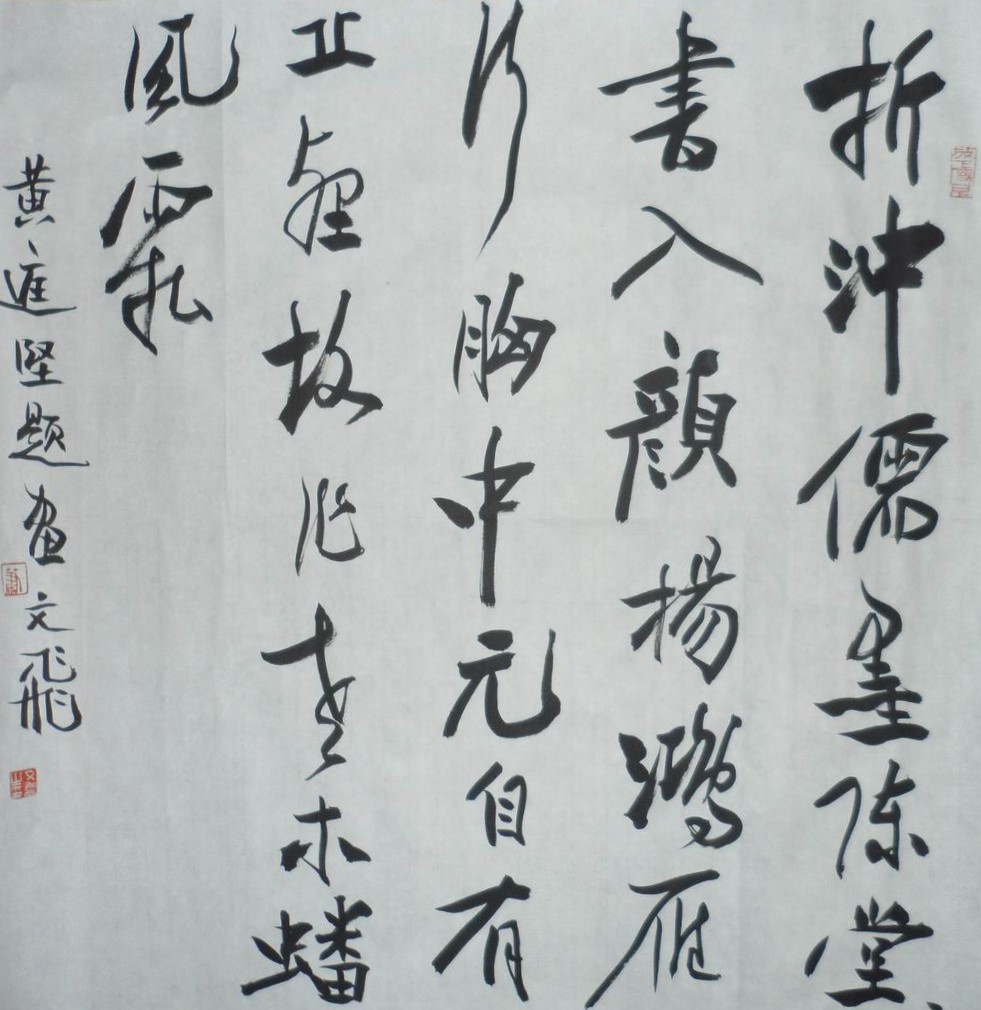 折沖儒墨陈堂、
書入顔揚鴻雁
行胸中元自有
丘壑故作老木蟠
风霜
黄庭坚题画 文飛